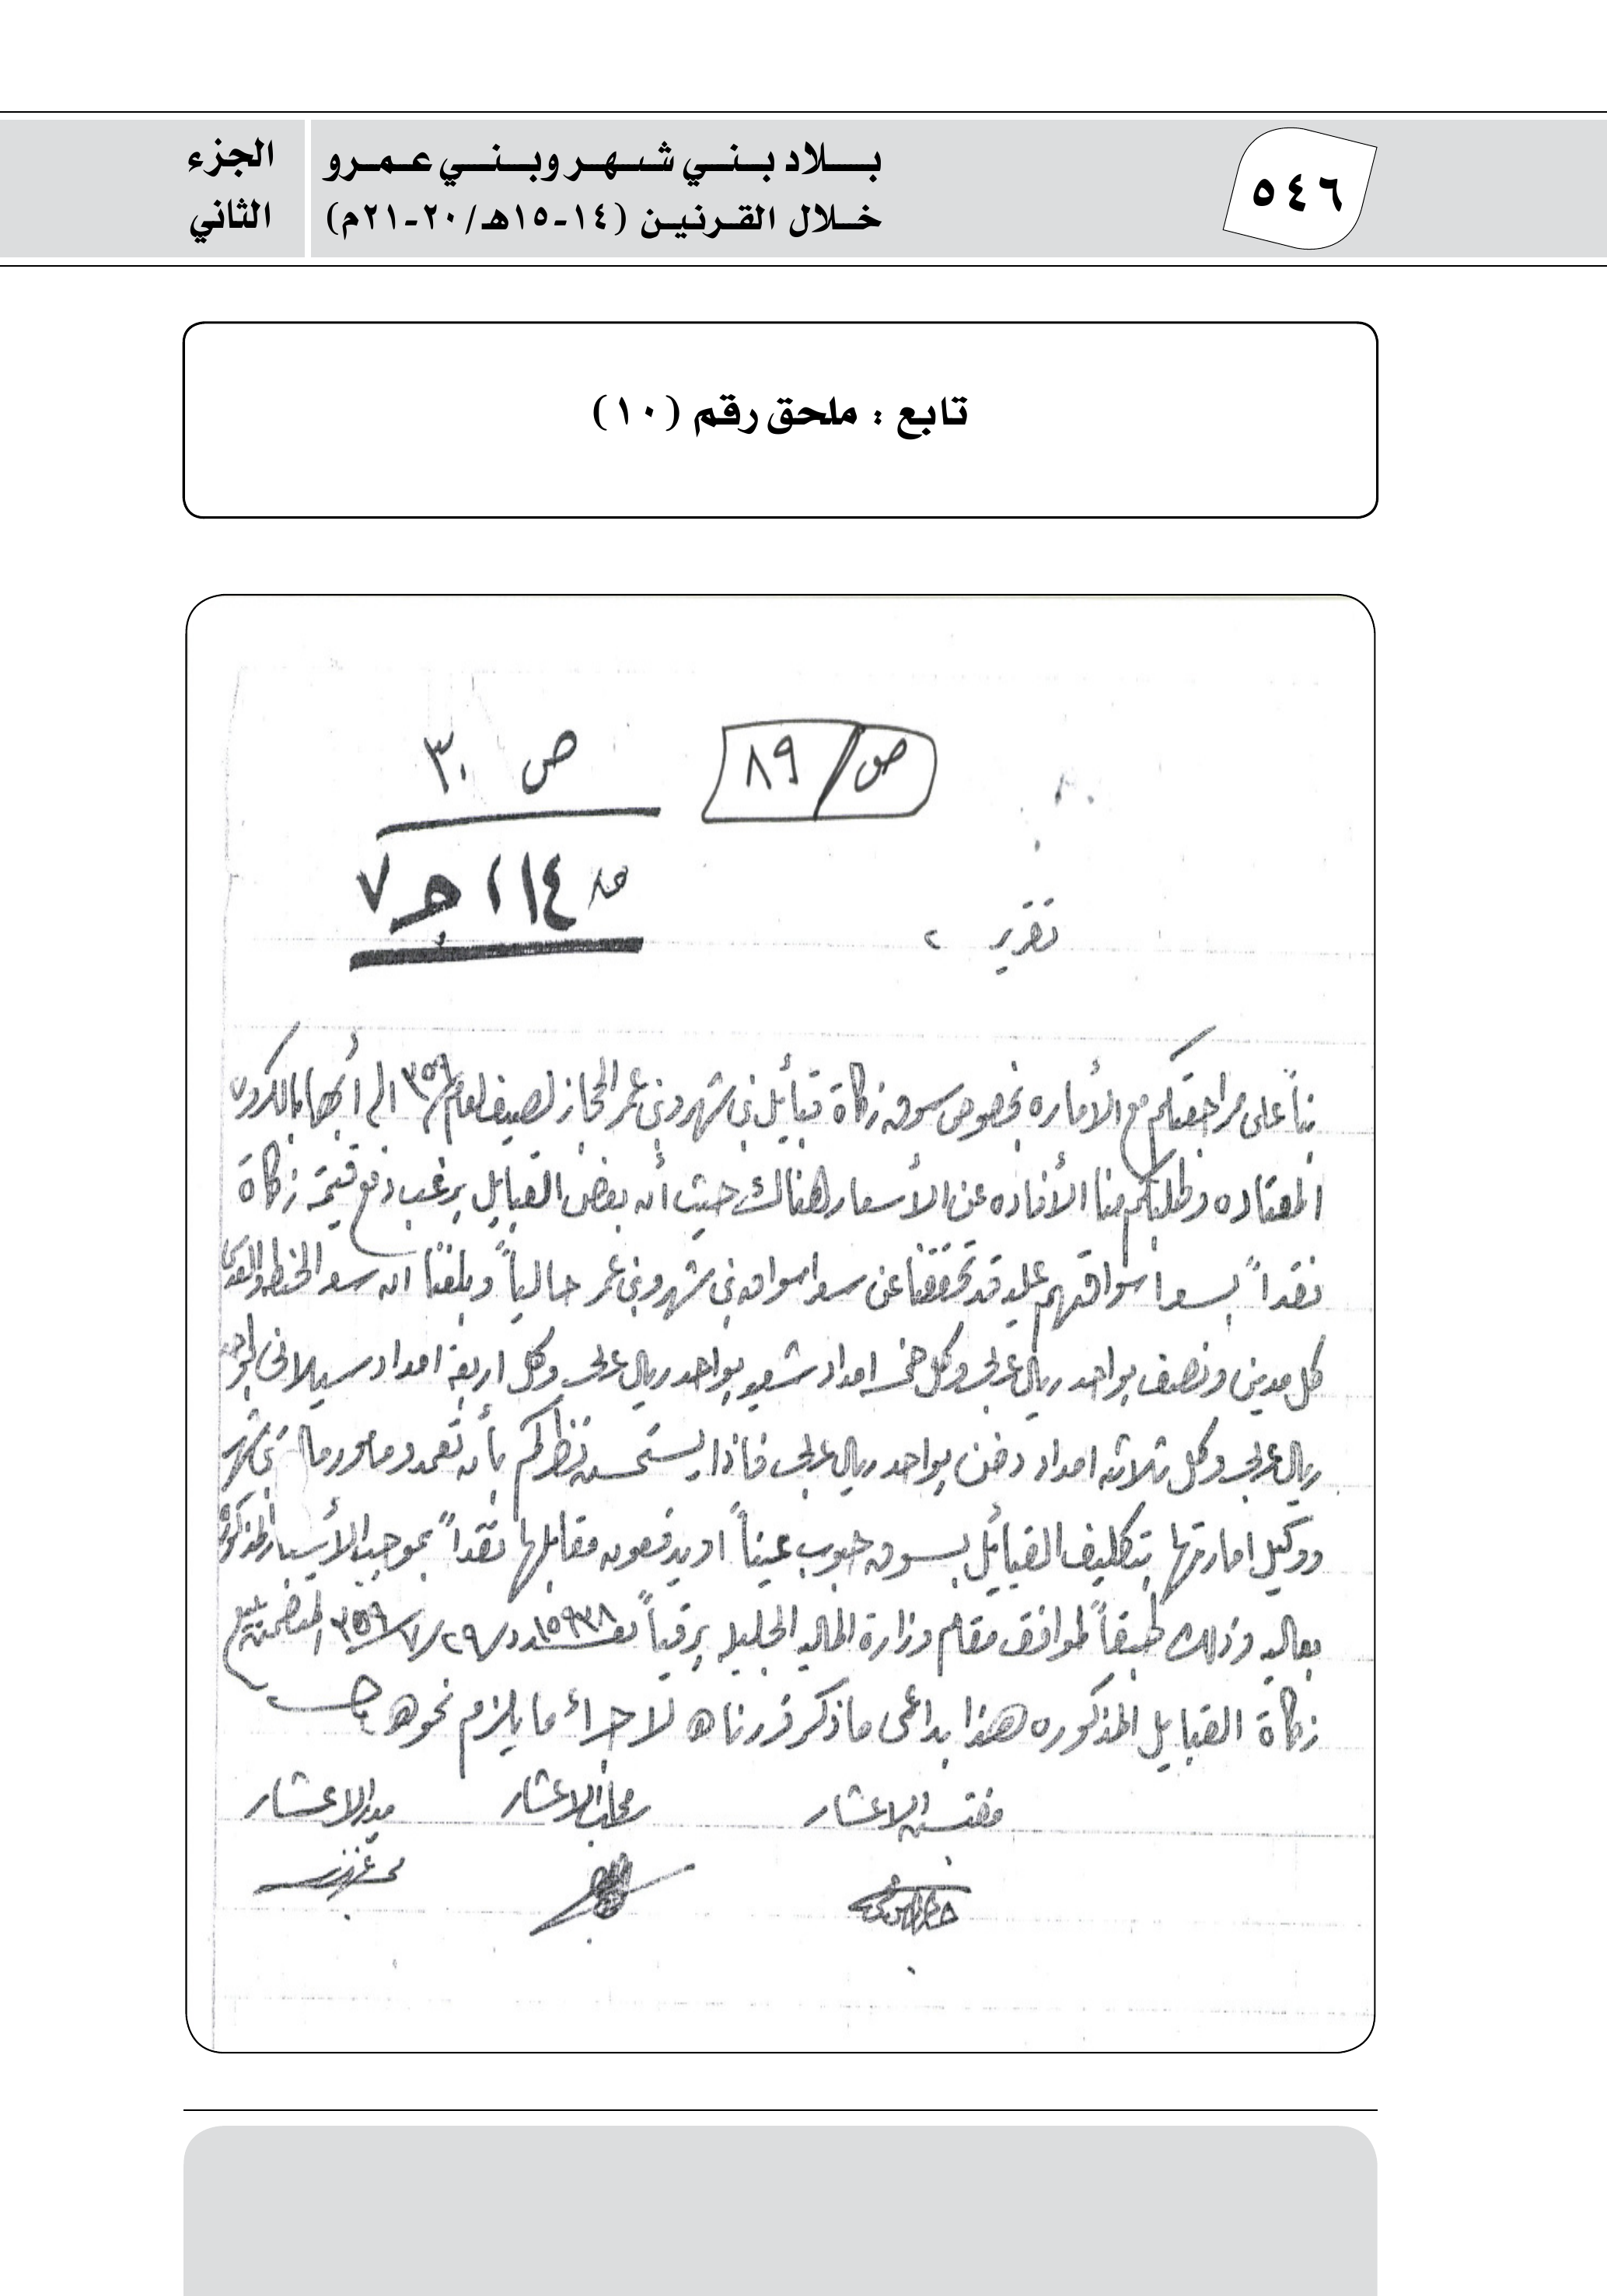 ٥٤٦
بلاد بني شهر وبني عمرو
خلال القرنين (١٤-١٥هـ/٢٠-٢١م)
الجزء
الثاني
تابع : ملحق رقم (١٠)
ص/٨٩
ص ٣٠
١١٤، جـ٧
تقرير
بناءً على مراجعتكم مع الأماره بخصوص سوق زكاة قبائل بني شهر وبني عمر الحجاز لصيف لعام ٣٥٩ الى أبها
المعتاده وطلبكم منا الأفاده عن الأسعار هناك حيث أن بعض القبايل يرغب دفع قيمة زكاة
نقداً بسعر اسواقهم عليه قد تحققنا عن سعر اسواق بني شهر وبني عمر حالياً وبلغنا ان سعر الحنطه
كل مدين ونصف بواحد ريال عربي وكل خمسه امداد شعير بواحد ريال عربي وكل اربعة امداد سيلاني
ريال عربي وكل ثلاثه امداد دخن بواحد ريال عربي فاذا يستحسن نظركم بأن تعمدو مامور مال بني شهر
ووكيل امارتها بتكليف القبائل بسوق حبوب عيناً او يدفعون مقابلها نقداً بموجب المذكوره
بعاليه وذلك طبقاً لموافقة مقام وزارة الماليه الجليله برقياً بعدد ١٥٩٣٨ في ٢٩/٧/٣٥٩ المتضمن
زكاة القبايل المذكوره هذا بداعي ما ذكر قررناه لاجراء ما يلزم نحوه
مفتش الاعشار
محاسب الاعشار
مدير الاعشار